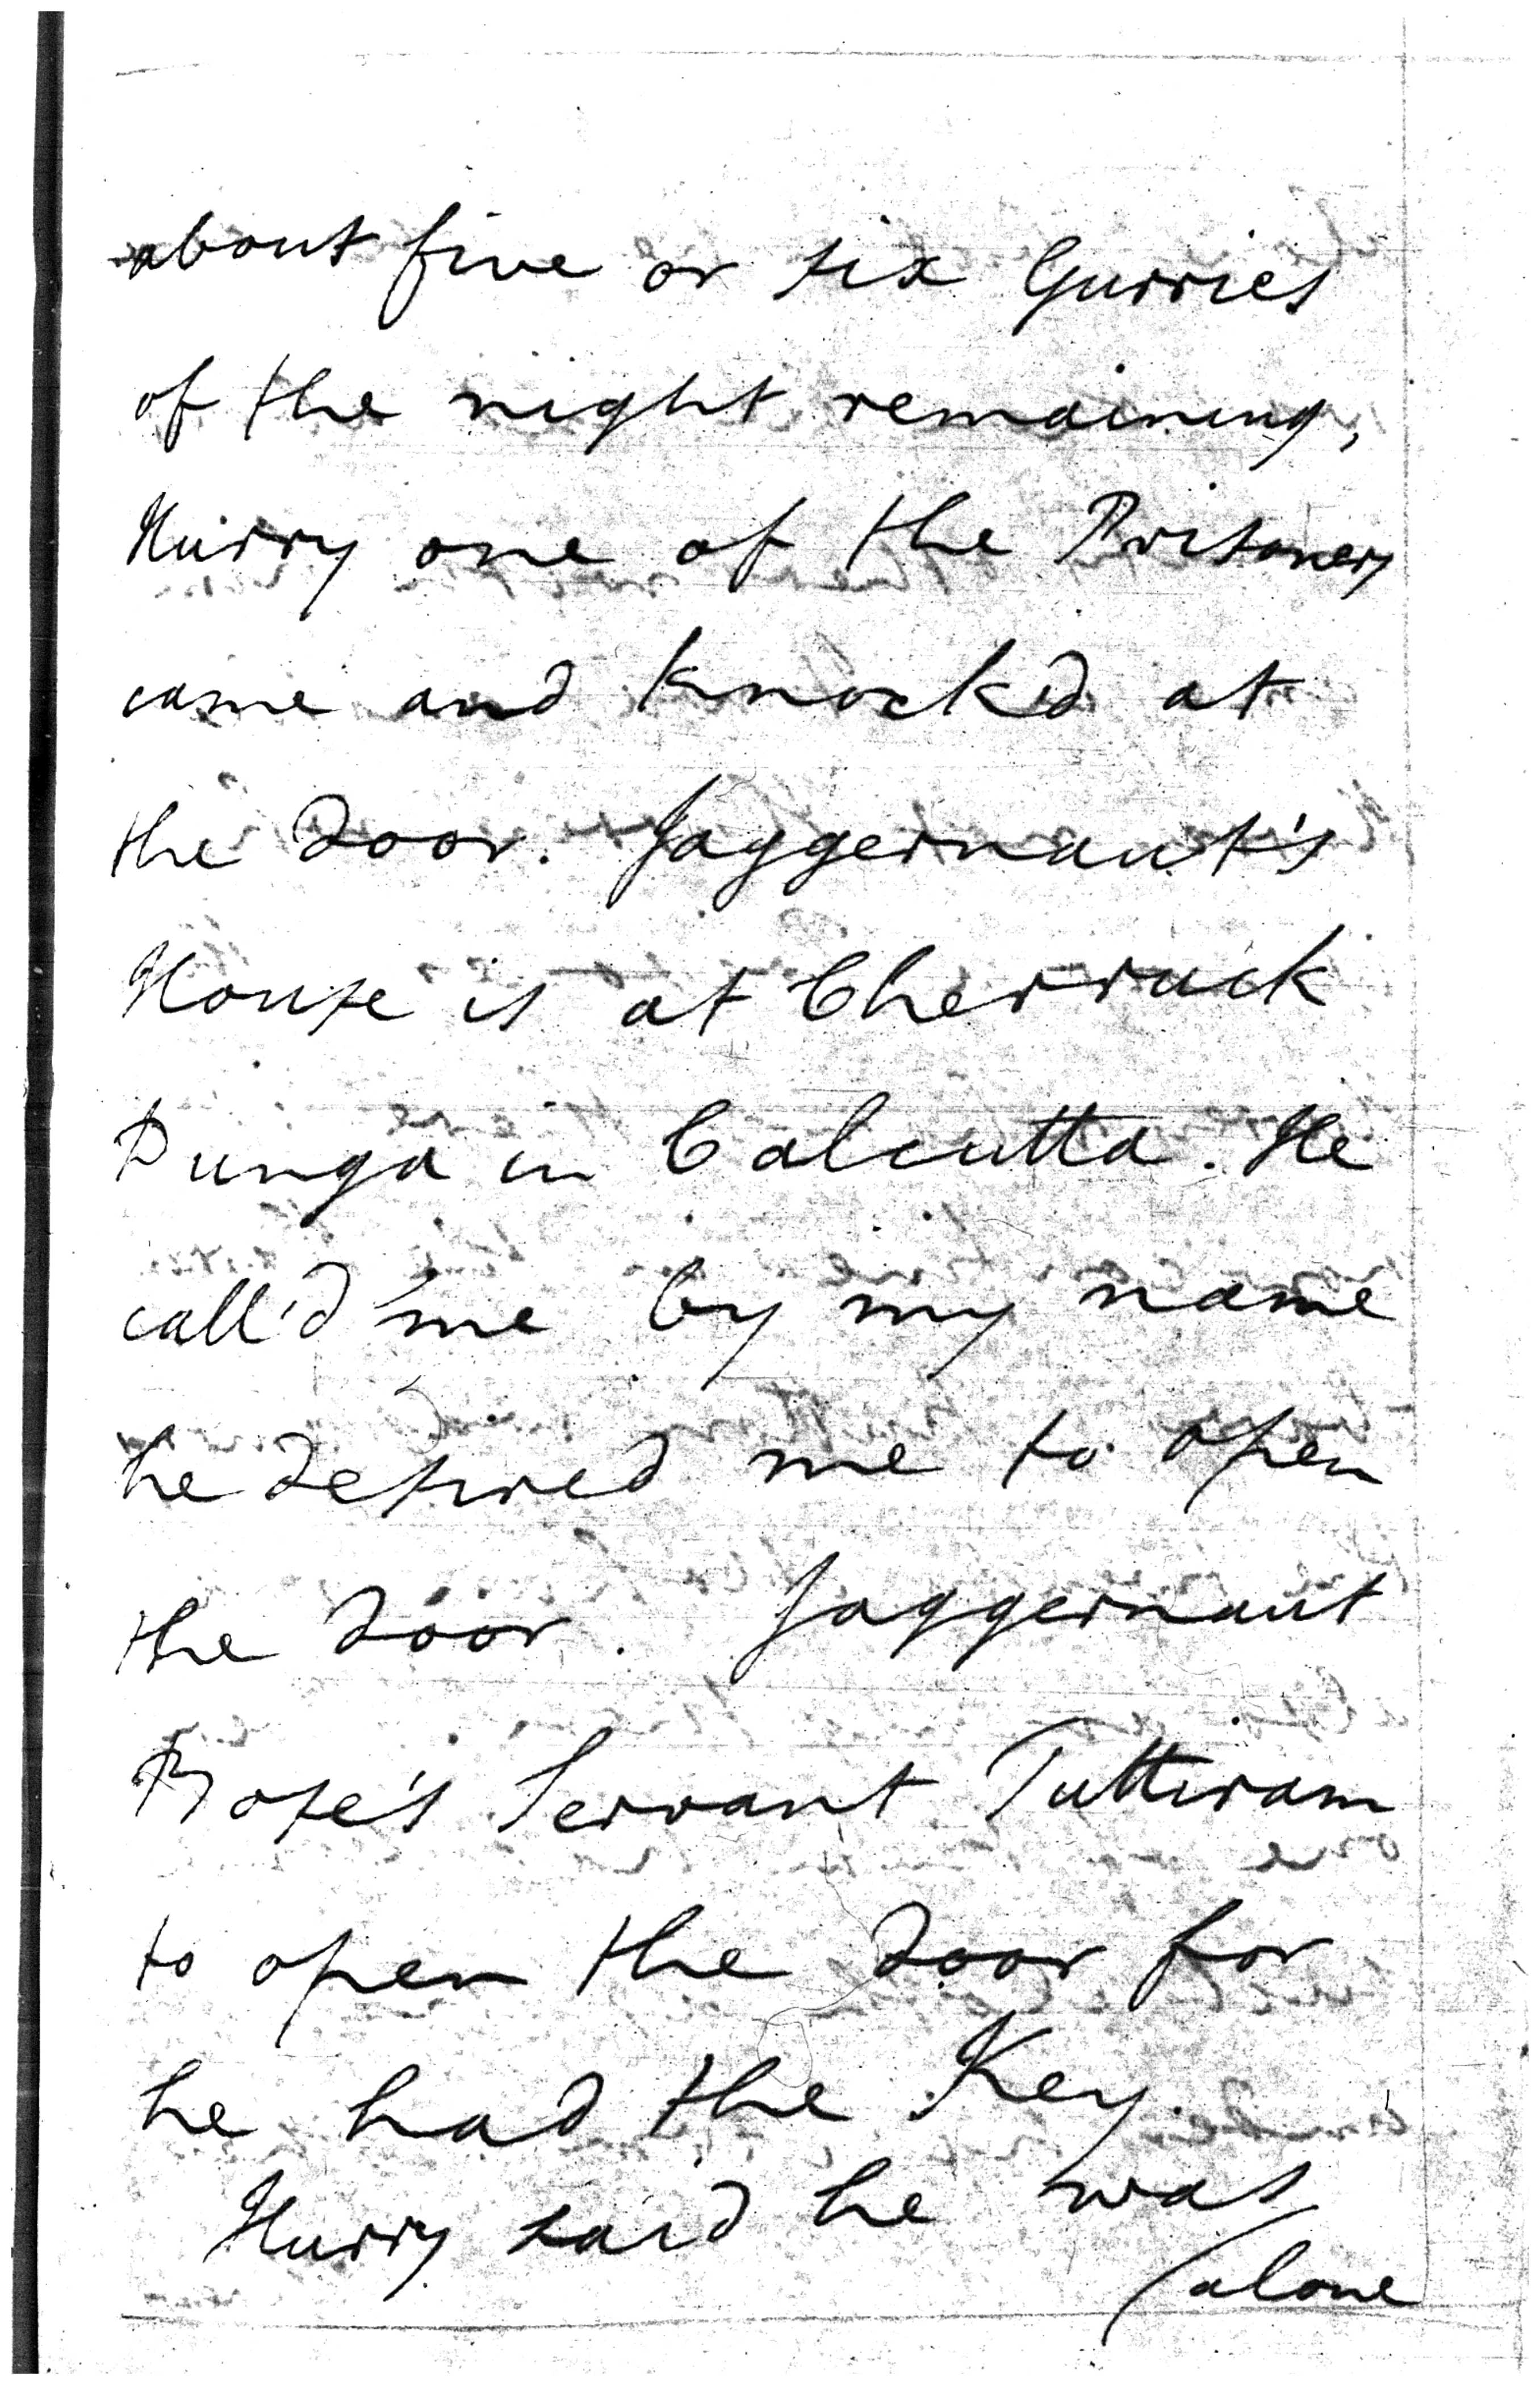 about five or six Gurries
of the night remaining,
Hurry one of the Prisoners
came and knock'd at
the Door. Jaggernaut's
House is at Cherruck
Dunga in Calcutta. He
call'd me by my name
he desired me to open
the Door. Jaggernaut
Bose's Servant Tuttiram
to open the Door for
he had the Key.
Hurry said he was
alone